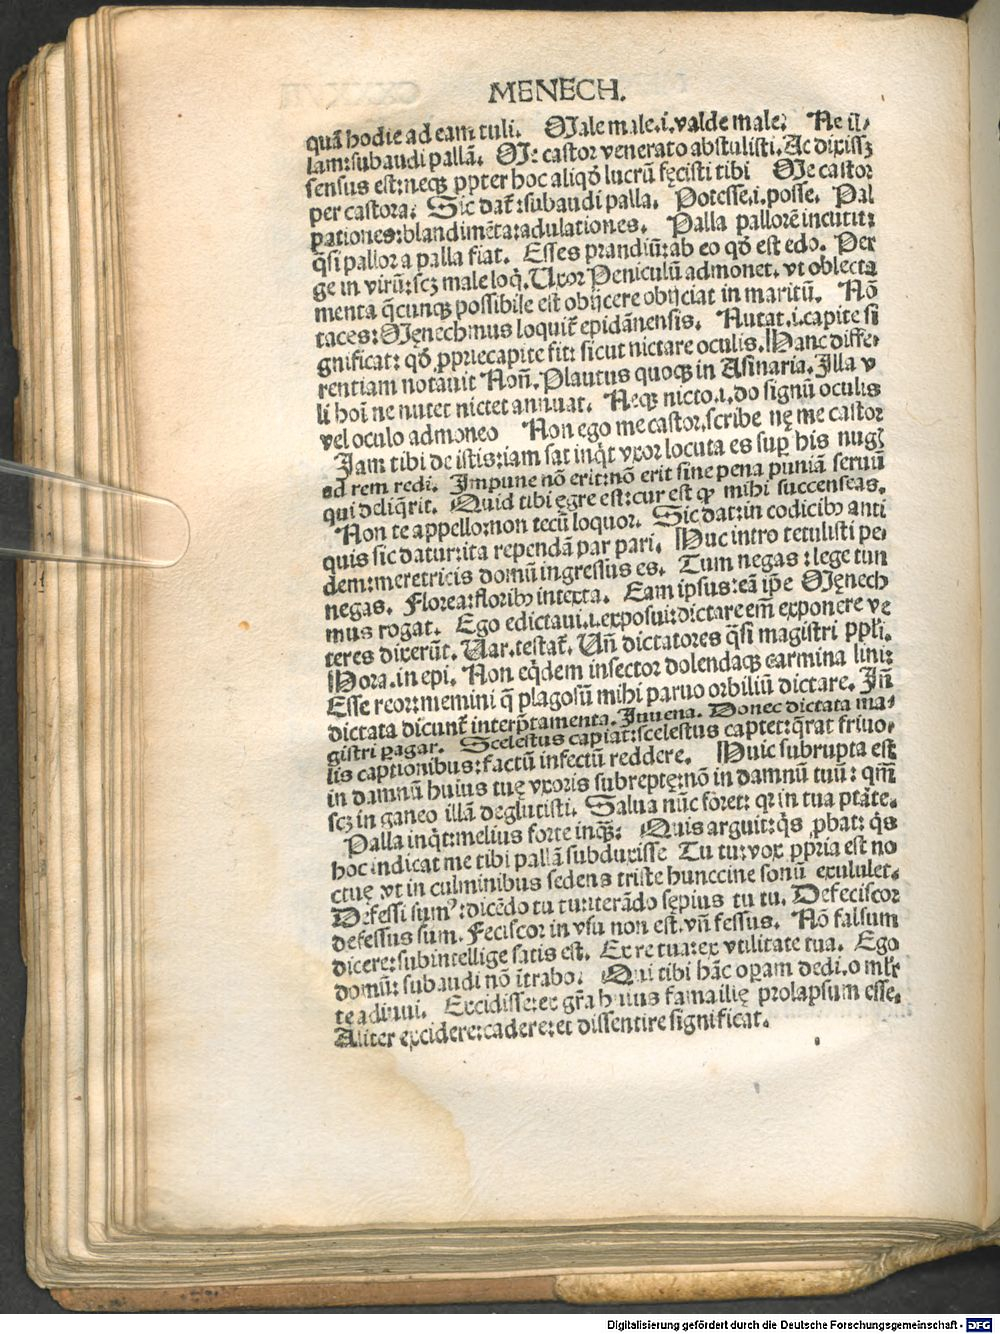 MENECH.
quã hodie ad eam tuli. Male male.i.valde male: Ne il/
lam:subaudi pallã. Me castor venerato abstulisti. Ac dixissꝫ
sensus est:neqꝫ ꝓpter hoc aliqđ lucrũ fęcisti tibi Me castor
per castora: Sic dat̃:subaudi palla. Potesse.i.posse. Pal
pationes:blandimẽta:adulationes. Palla pallorẽ incutit:
q̃si pallor a palla fiat. Esses prandiũ:ab eo qđ est edo. Per
ge in virũ:scꝫ male loq̃. Uxor Peniculũ admonet. vt oblecta
menta q̃cunqꝫ possibile est obijcere obijciat in maritũ. Nõ
taces: Męnechmus loquit̃ epidãnensis. Nutat.i.capite si
gnificat: qđ ꝓprie capite fit: sicut nictare oculis. Hanc diffe/
rentiam notauit Noñ. Plautus quoqꝫ in Asinaria. Illa v
li hoĩ ne nutet nictet annuat. Neqꝫ nicto.i.do signũ oculis
vel oculo admoneo Non ego me castor.scribe nę me castor
Jam tibi de istis:iam sat inq̃t vxor locuta es suꝑ his nugꝭ
ad rem redi. Impune nõ erit:nõ erit sine pena puniã seruũ
qui deliq̃rit. Quid tibi ęgre est:cur est ꝙ mihi succenseas.
Non te appello:non tecũ loquor. Sic dat:in codicibꝰ anti
quis sic datur:ita rependã par pari. Huc intro tetulisti pe/
dem:meretricis domũ ingressus es. Tum negas:lege tun
negas. Florea:floribꝰ intexta. Eam ipsus:eã ip̃e Męnech
mus rogat. Ego edictaui.i.exposui:dictare em̃ exponere ve
teres dixerũt. Uar.testat̃. Uñ dictatores q̃si magistri ppl̃i.
Hora.in epi. Non eq̃dem insector dolendaqꝫ carmina liui:
Esse reor:memini q̃ plagosũ mihi paruo orbiliũ dictare. Iñ
dictata dicunt̃ interp̃tamenta. Iuuena. Donec dictata ma/
gistri pagar. Scelestus capiat:scelestus captet:q̃rat friuo/
lis captionibus:factũ infectũ reddere. Huic subrupta est
in damnũ huius tuę vxoris subreptę:nõ in damnũ tuũ: qm̃
scꝫ in ganeo illã deglutisti. Salua nũc foret: qꝛ in tua ptãte.
Palla inq̃t:melius forte inq̃ꝫ: Quis arguit:q̃s ꝓbat: q̃s
hoc indicat me tibi pallã subduxisse Tu tu:vox ꝓpria est no
ctuę vt in culminibus sedens triste hunccine sonũ exululet.
Defessi sumꝰ:dicẽdo tu tu:iterãdo sępius tu tu. Defeciscor
defessus sum. Feciscor in vsu non est.vñ fessus. Nõ falsum
dicere:subintellige satis est. Ex re tua:ex vtilitate tua. Ego
domũ:subaudi nõ ĩtrabo: Qui tibi hãc oꝑam dedi.o ml̃r
te adiuui. Excidisse:ex gr̃a huius famailię prolapsum esse.
Aliter excidere:cadere:et dissentire significat.
Digitalisierung gefördert durch die Deutsche Forschungsgemeinschaft - DFG